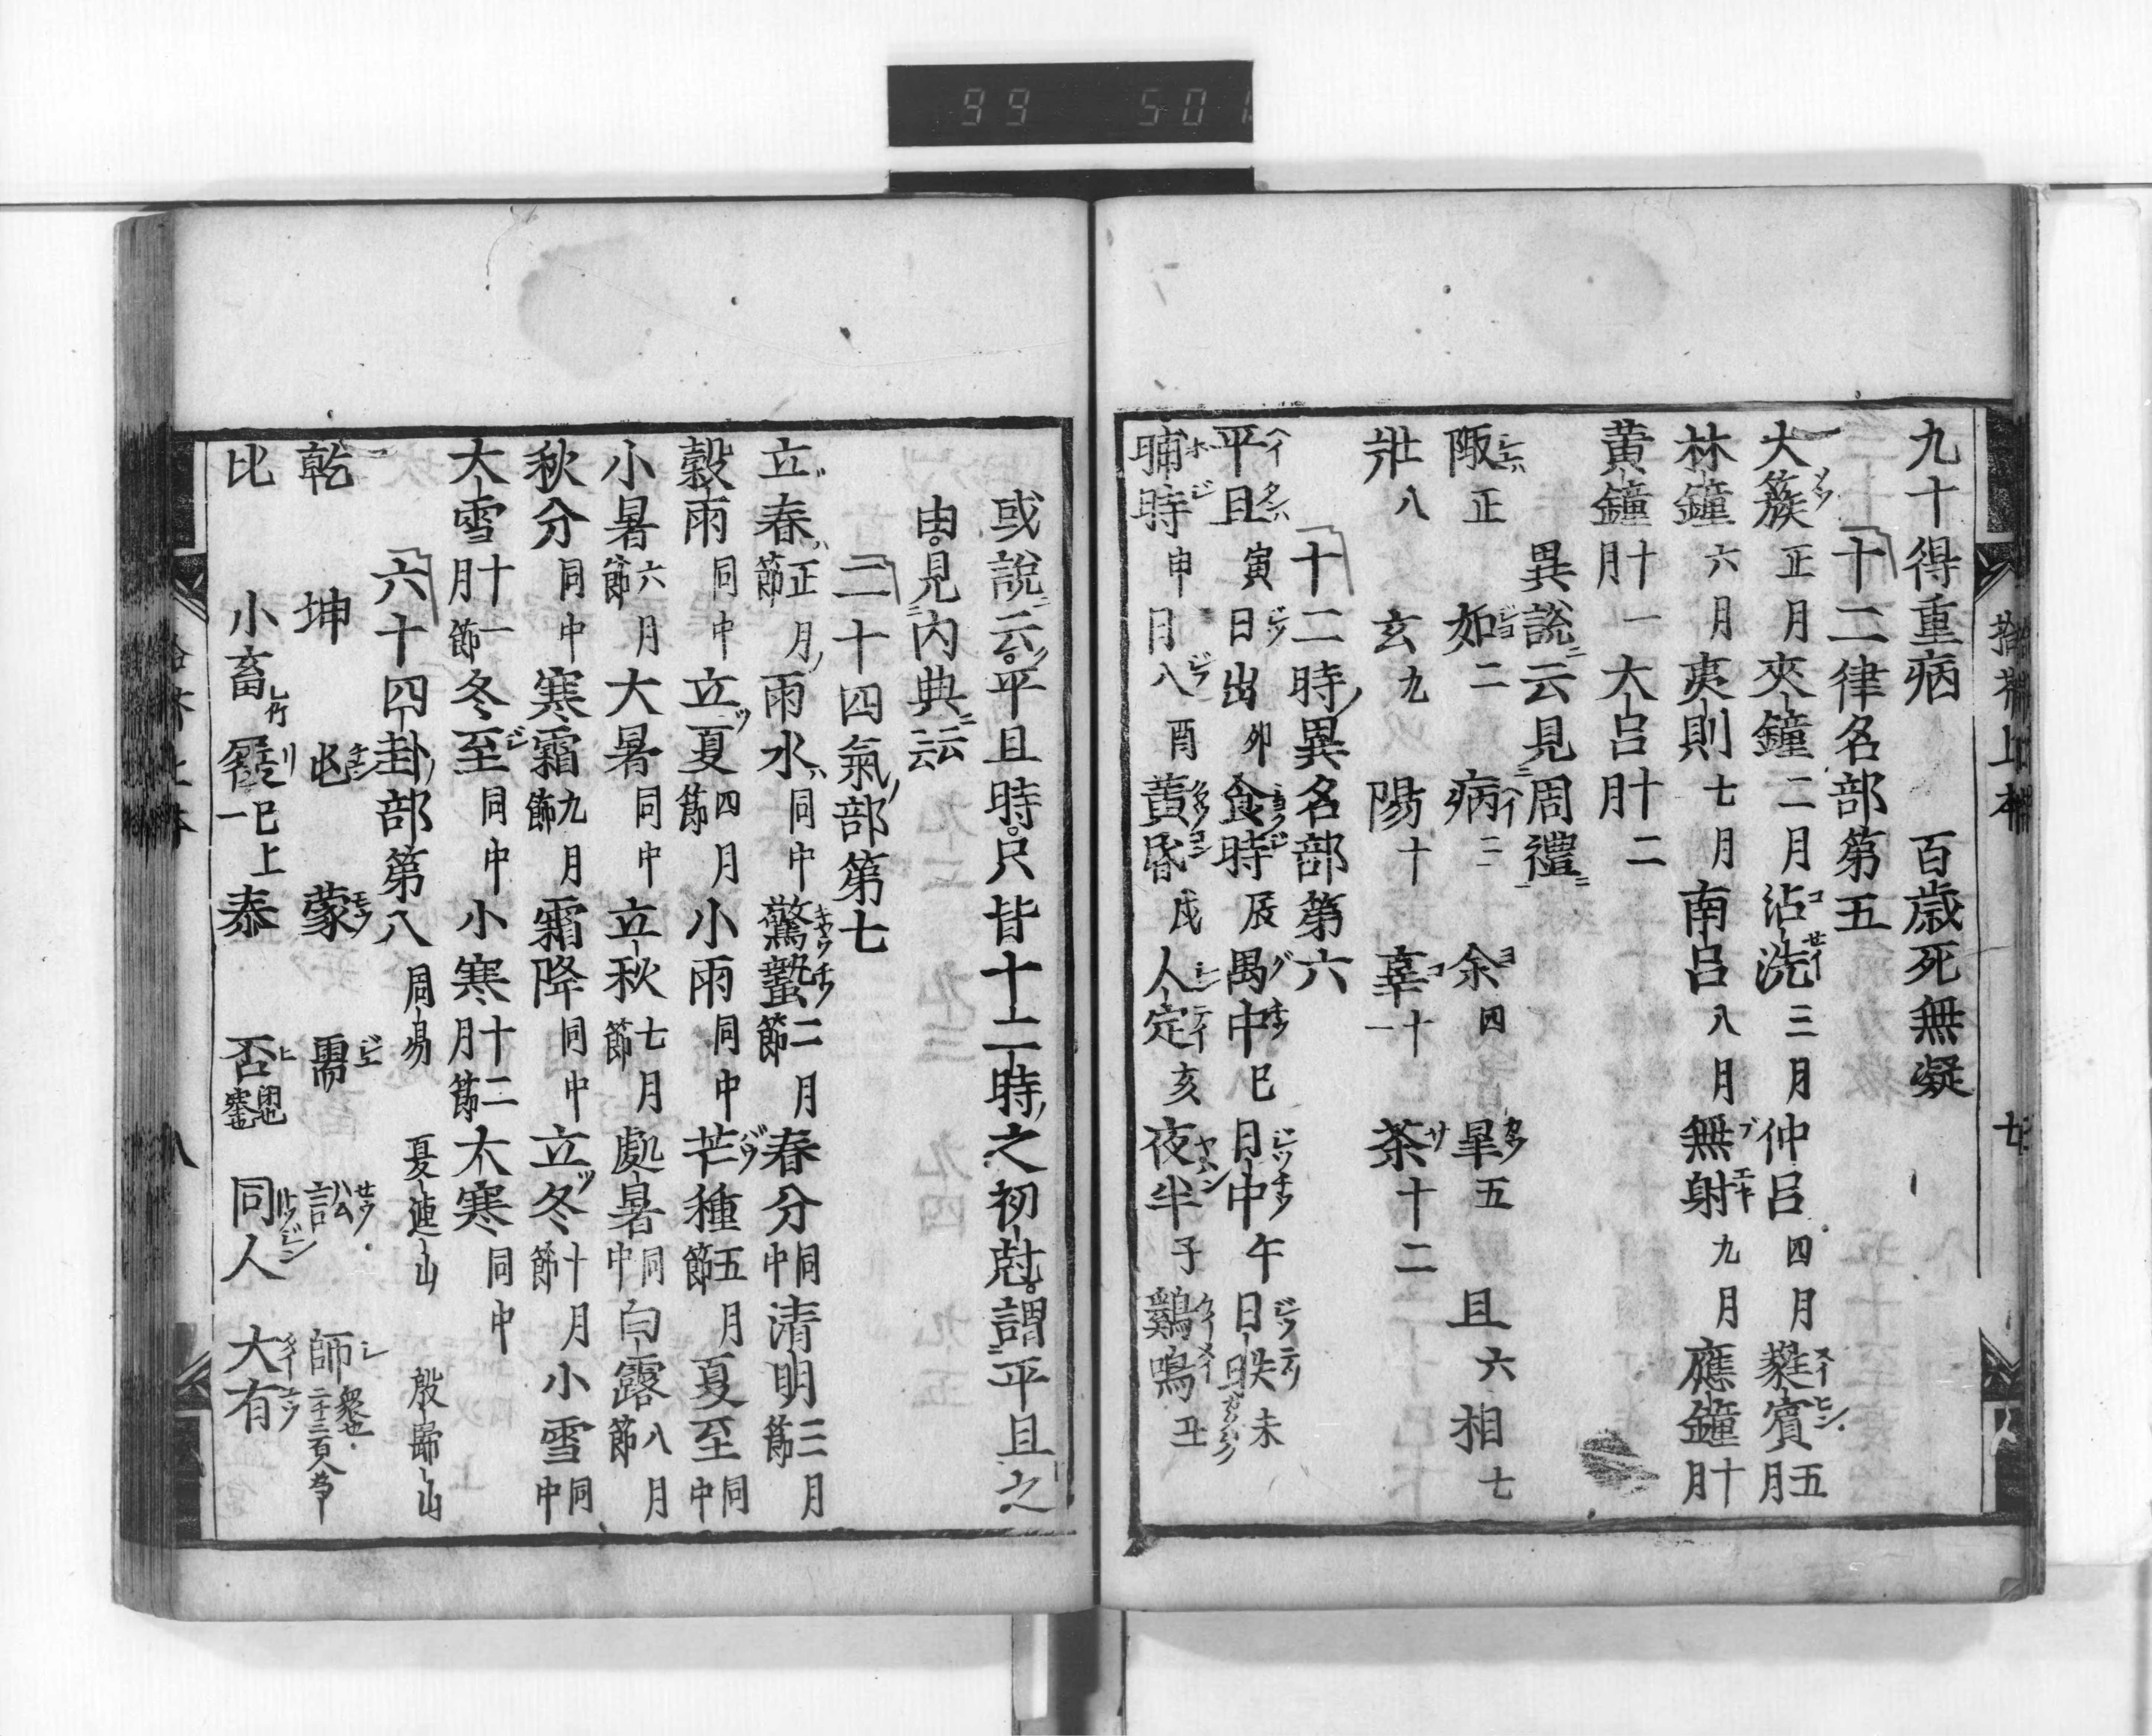 99 501
九十得重病 百歳死無凝
十二律名部第五
大簇 正月 夾鐘 二月 沽洗 三月 仲呂 四月 蕤賓 五月
林鐘 六月 夷則 七月 南呂 八月 無射 九月 應鐘 十月
黄鐘 十一月 大呂 十二月
異説云見周禮
陬 正 如 二 病 三 余 四 皐 五 且 六 相 七
壯 八 玄 九 陽 十 辜 十一 荼 十二
十二時異名部第六
平旦 寅 日出 卯 食時 辰 禺中 巳 日中 午 日昳 未
晡時 申 日入 酉 黄昏 戌 人定 亥 夜半 子 鷄鳴 丑
或説云平旦時只皆十二時之初尅謂平旦之
由見内典云云
二十四氣部第七
立春 正月節 雨水 同中 驚蟄 二月節 春分 同中 清明 三月節
穀雨 同中 立夏 四月節 小雨 同中 芒種 五月節 夏至 同中
小暑 六月節 大暑 同中 立秋 七月節 處暑 同中 白露 八月節
秋分 同中 寒霜 九月節 霜降 同中 立冬 十月節 小雪 同中
大雪 十一月節 冬至 同中 小寒 十二月節 大寒 同中
六十四卦部第八 周易 夏連山 殷歸山
乾 坤 屯 蒙 需 訟 師 衆也
比 小畜 履 已上一 泰 否 同人 大有
八